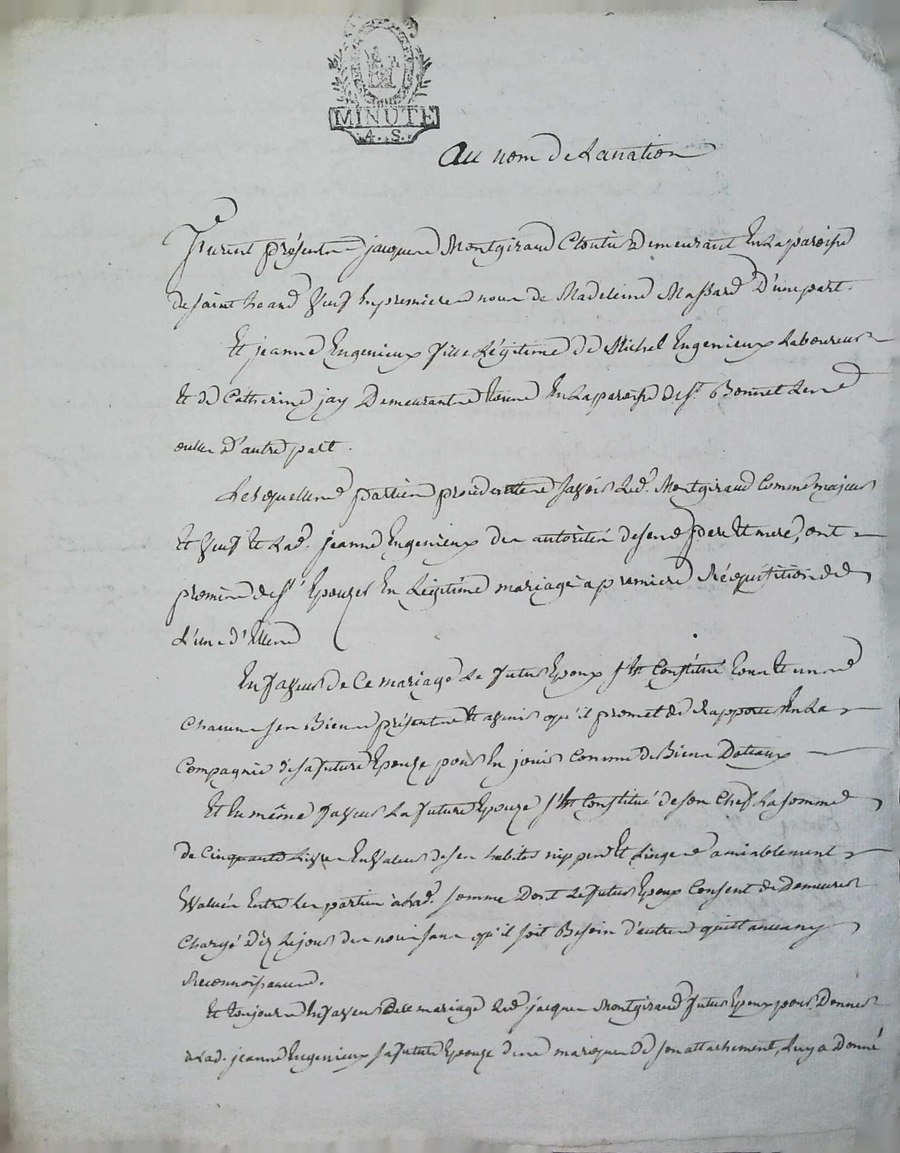 MINUTE
A. S.
Au nom de La nation
Furent présents jacques Montgiraud Cloutier Demeurant En La paroisse
de saint heand Veuf En premieres noces de Madeleine Massard D'une part.
Et jeanne Engenieux fille Légitime de Michel Engenieux Laboureur
Et de Catherine jay Demeurants tous En La paroisse de St. Bonnet Les
oulles D'autre part.
Lesquelles parties procedantes savoir Led. Montgiraud Comme majeur
Et Veuf Et Lad. jeanne Engenieux des autorités de ses pere Et mere, ont
promis de s'Epouzer En Légitime mariage a premiere Réquisition de
L'une d'Elles
En faveur de Ce mariage Le futur Epoux s'Est Constitué tous Et uns
Chacuns ses Biens présents Et avenir qu'il promet de Rapporter En La
Compagnie de sa future Epouze pour En jouir Comme de Biens Dotaux
Et En même faveur La future Epouze s'Est Constitué de son Chef La somme
de Cinquante Livres En Valeur de ses habits nippes Et Linges amiablement
Evalués Entre Les parties a Lad. somme Dont Le futur Epoux Consent de Demeurer
Chargé Dez Le jour des noces sans qu'il soit Besoin d'autre quittance ny
Reconnoissance.
Et toujours En faveur de Ce mariage Led. jacques Montgiraud futur Epoux pour Donner
a Lad. jeanne Engenieux sa future Epouze des marques de son attachement, Luy a Donné